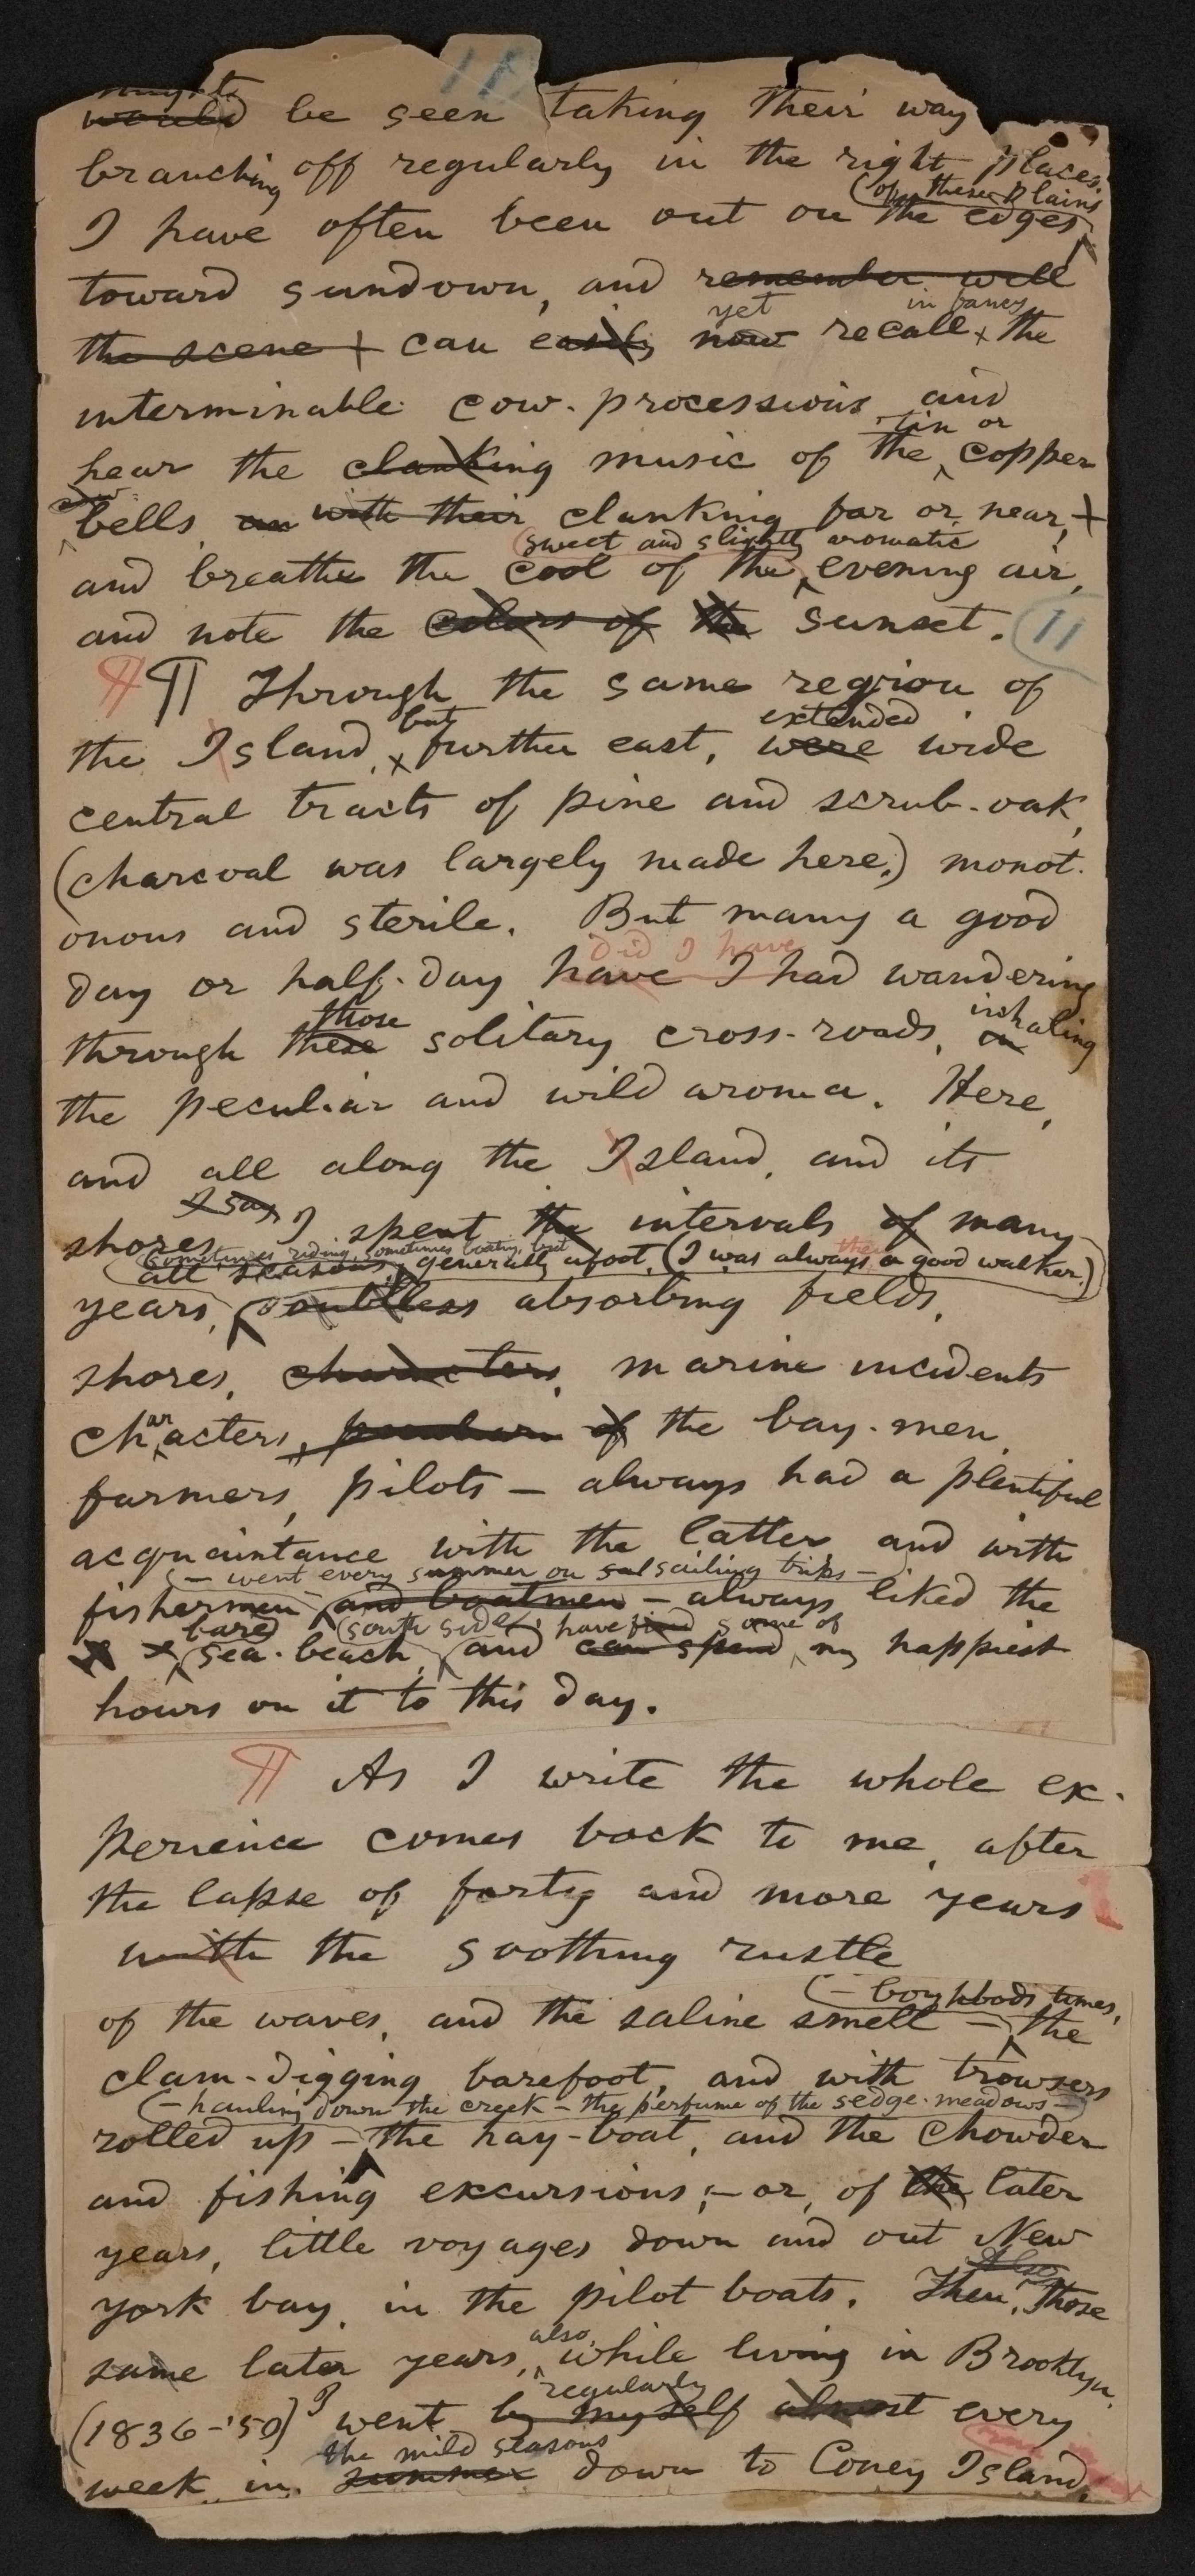 11
might
would be seen taking their way
branching off regularly in the right places.
(of these plains
I have often been out on the edges
toward sundown, and remember well
yet in fancy
the scene + can easily now recall the
interminable cow-processions, and
tin or
hear the clanking music of the copper
cow
bells an with their clanking far or near, +
sweet and slightly aromatic
and breathe the cool of the evening air,
and note the colors of the sunset. 11
¶ ¶ Through the same region of
but extended
the Island, further east, were wide
central tracts of pine and scrub-oak,
(charcoal was largely made here,) monot-
onous and sterile. But many a good
did I have
day or half-day have I had wandering
those inhaling
through these solitary cross-roads, in
the peculiar and wild aroma. Here,
and all along the Island, and its
I say
shores, I spent the intervals of many
sometimes riding, sometimes boating, but
all seasons, generally afoot, (I was always then a good walker,)
years, doubtless absorbing fields,
shores, characters, marine incidents
ar
chacters, of the bay-men,
farmers, pilots — always had a plentiful
acquaintance with the latter and with
— went every summer on sail sailing trips —
fishermen and boatmen — always liked the
bare (south side have some of
sea-beach, and can spend my happiest
hours on it to this day.
¶ As I write the whole ex-
perience comes back to me, after
the lapse of forty and more years
with the soothing rustle
of the waves, and the saline smell —
(— boyhood's times,
the
clam-digging barefoot, and with trowsers
(— hauling down the creek — the perfume of the sedge-meadows —)
rolled up — the hay-boat, and the chowder
and fishing excursions; — or, of the later
years, little voyages down and out New
Also
York bay, in the pilot boats. Then, Those
also,
same later years, while living in Brooklyn,
regularly
(1836-'50) I went by myself almost every
the mild seasons
week in summer down to Coney Island,